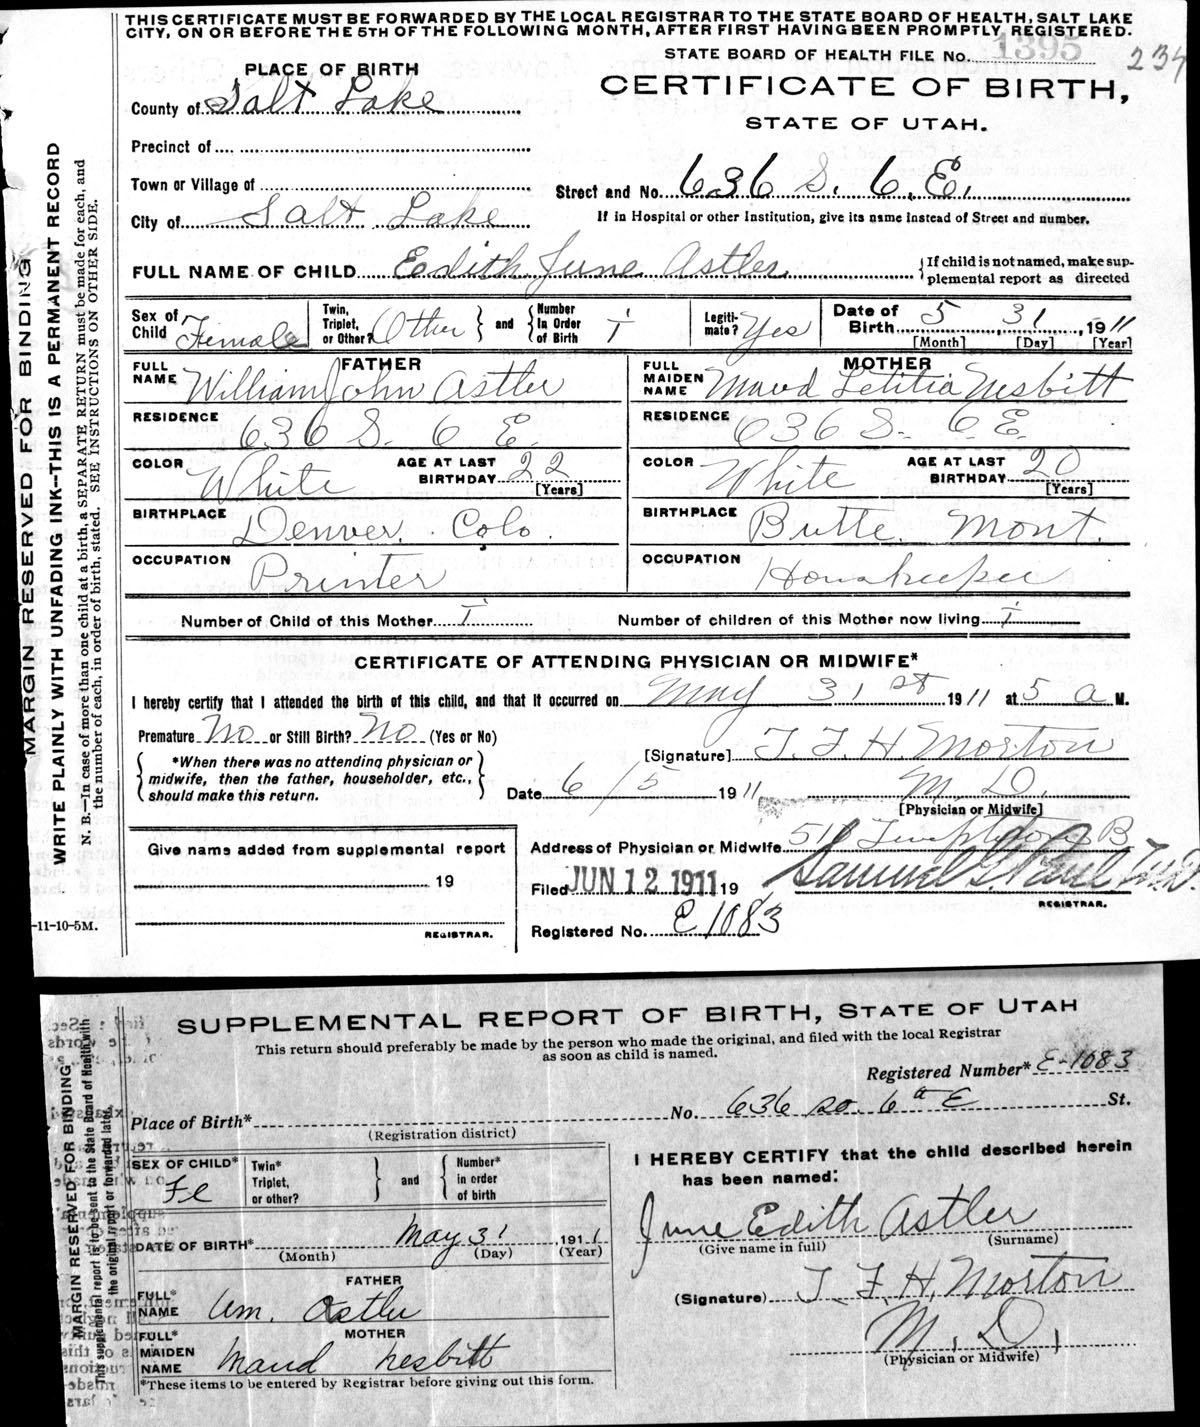 THIS CERTIFICATE MUST BE FORWARDED BY THE LOCAL REGISTRAR TO THE STATE BOARD OF HEALTH, SALT LAKE
CITY, ON OR BEFORE THE 5TH OF THE FOLLOWING MONTH, AFTER FIRST HAVING BEEN PROMPTLY REGISTERED.
STATE BOARD OF HEALTH FILE No. 1395 234
PLACE OF BIRTH
CERTIFICATE OF BIRTH,
STATE OF UTAH.
County of Salt Lake
Precinct of
Town or Village of
Street and No. 636 S. 6. E.
City of Salt Lake
If in Hospital or other Institution, give its name instead of Street and number.
FULL NAME OF CHILD Edith June Astler
{If child is not named, make sup-
plemental report as directed
Sex of Child Female
Twin, Triplet, or Other? Other } and { Number In Order of Birth 1
Legiti-mate? Yes
Date of Birth 5 31, 1911
[Month] [Day] [Year]
FATHER
FULL NAME William John Astler
RESIDENCE 636 S. 6 E.
COLOR White AGE AT LAST BIRTHDAY 22
[Years]
BIRTHPLACE Denver. Colo.
OCCUPATION Printer
MOTHER
FULL MAIDEN NAME Maud Letitia Nesbitt
RESIDENCE 636 S. 6. E.
COLOR White AGE AT LAST BIRTHDAY 20
[Years]
BIRTHPLACE Butte. Mont.
OCCUPATION Housekeeper
Number of Child of this Mother 1 Number of children of this Mother now living 1
CERTIFICATE OF ATTENDING PHYSICIAN OR MIDWIFE*
I hereby certify that I attended the birth of this child, and that it occurred on May 31st 1911 at 5 a M.
Premature No or Still Birth? No (Yes or No)
{ *When there was no attending physician or
midwife, then the father, householder, etc.,
should make this return. }
[Signature] T. F. H. Morton
Date 6/5 1911 M. D.
[Physician or Midwife]
Give name added from supplemental report
19
REGISTRAR.
Address of Physician or Midwife 511 Templeton B
Filed JUN 12 1911 19 Samuel G. Paul M.D.
REGISTRAR.
Registered No. E1083
MARGIN RESERVED FOR BINDING
WRITE PLAINLY WITH UNFADING INK—THIS IS A PERMANENT RECORD
N. B.—In case of more than one child at a birth, a SEPARATE RETURN must be made for each, and
the number of each, in order of birth, stated. SEE INSTRUCTIONS ON OTHER SIDE.
-11-10-5M.
SUPPLEMENTAL REPORT OF BIRTH, STATE OF UTAH
This return should preferably be made by the person who made the original, and filed with the local Registrar
as soon as child is named.
Registered Number* E-1083
Place of Birth* No. 636 So. 6th E St.
(Registration district)
SEX OF CHILD* Fe
Twin* Triplet, or other? } and { Number* in order of birth
DATE OF BIRTH* May 31, 1911
(Month) (Day) (Year)
FATHER
FULL* NAME Wm. Astler
MOTHER
FULL* MAIDEN NAME Maud Nesbitt
*These items to be entered by Registrar before giving out this form.
I HEREBY CERTIFY that the child described herein
has been named:
June Edith Astler
(Give name in full) (Surname)
(Signature) T. F. H. Morton
M. D.
(Physician or Midwife)
MARGIN RESERVED FOR BINDING
This supplemental report is to be sent to the State Board of Health with
the original report or forwarded later.